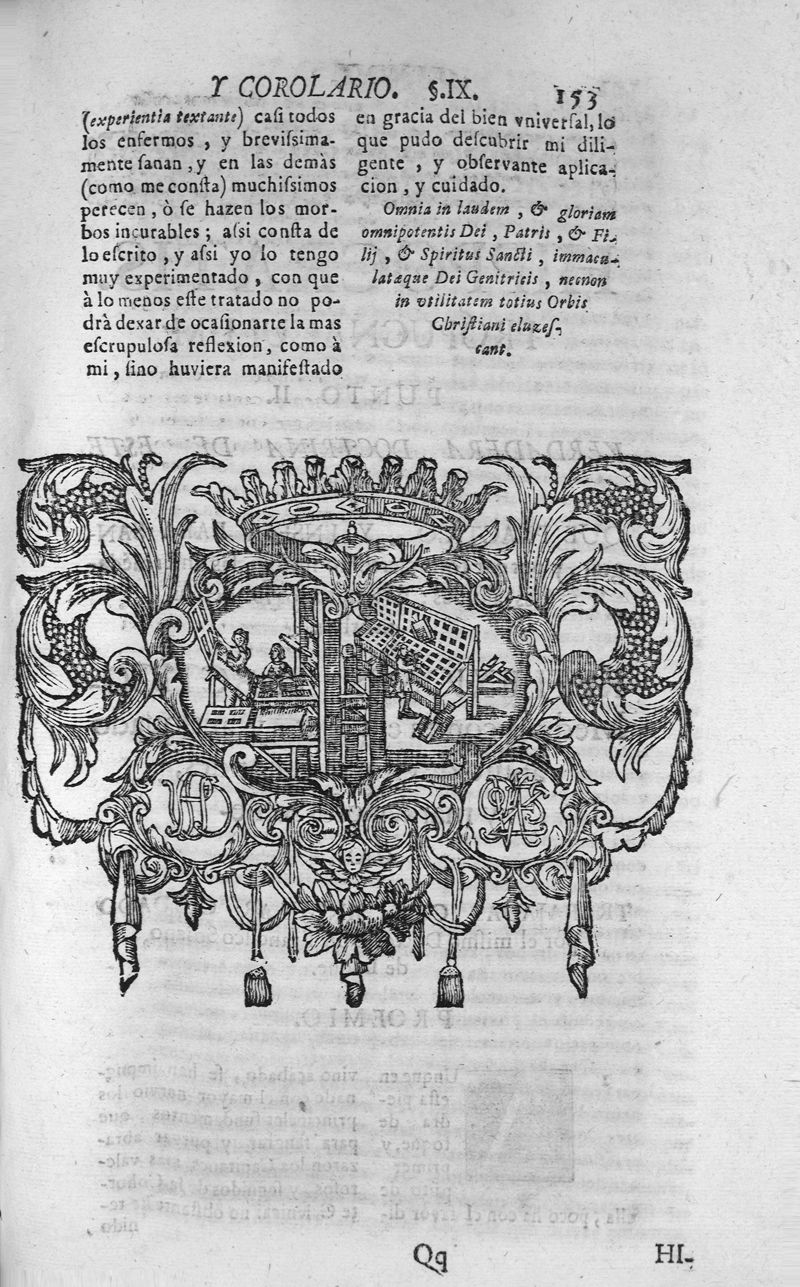 Y COROLARIO. §.IX. 153
(experientia textante) casi todos
los enfermos, y brevissima-
mente sanan, y en las demàs
(como me consta) muchissimos
perecen, ò se hazen los mor-
bos incurables; assi consta de
lo escrito, y assi yo lo tengo
muy experimentado, con que
à lo menos este tratado no po-
drà dexar de ocasionarte la mas
escrupulosa reflexion, como à
mi, sino huviera manifestado
en gracia del bien vniversal, lo
que pudo descubrir mi dili-
gente, y observante aplica-
cion, y cuidado.
Omnia in laudem, & gloriam
omnipotentis Dei, Patris, & Fi-
lij, & Spiritus Sancti, immacu-
lataque Dei Genitricis, necnon
in vtilitatem totius Orbis
Christiani eluzes-
cant.
Qq HI-